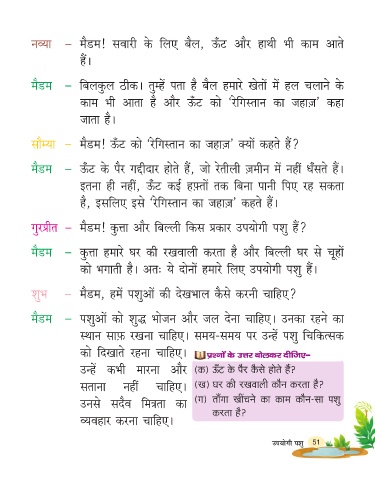 नव्या – मैडम! सवारी के लिए बैल, ऊँट और हाथी भी काम आते
हैं।
मैडम – बिलकुल ठीक। तुम्हें पता है बैल हमारे खेतों में हल चलाने के
काम भी आता है और ऊँट को ‘रेगिस्तान का जहाज़’ कहा
जाता है।
सौम्या – मैडम! ऊँट को ‘रेगिस्तान का जहाज़’ क्यों कहते हैं?
मैडम – ऊँट के पैर गद्दीदार होते हैं, जो रेतीली ज़मीन में नहीं धँसते हैं।
इतना ही नहीं, ऊँट कई हफ़्तों तक बिना पानी पिए रह सकता
है, इसलिए इसे ‘रेगिस्तान का जहाज़’ कहते हैं।
गुरप्रीत – मैडम! कुत्ता और बिल्ली किस प्रकार उपयोगी पशु हैं?
मैडम – कुत्ता हमारे घर की रखवाली करता है और बिल्ली घर से चूहों
को भगाती है। अतः ये दोनों हमारे लिए उपयोगी पशु हैं।
शुभ – मैडम, हमें पशुओं की देखभाल कैसे करनी चाहिए?
मैडम – पशुओं को शुद्ध भोजन और जल देना चाहिए। उनका रहने का
स्थान साफ़ रखना चाहिए। समय-समय पर उन्हें पशु चिकित्सक
को दिखाते रहना चाहिए।
उन्हें कभी मारना और
सताना नहीं चाहिए।
उनसे सदैव मित्रता का
व्यवहार करना चाहिए।
प्रश्नों के उत्तर बोलकर दीजिए–
(क) ऊँट के पैर कैसे होते हैं?
(ख) घर की रखवाली कौन करता है?
(ग) ताँगा खींचने का काम कौन-सा पशु
करता है?
उपयोगी पशु 51